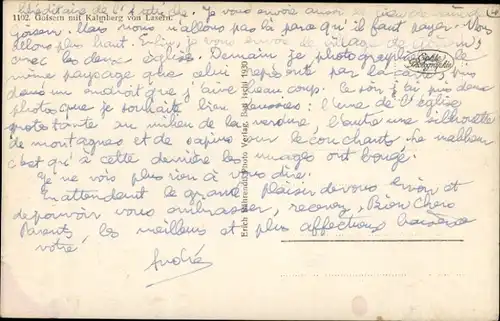 1102. Goisern mit Kalmberg von Lasern.
je vous envois aussi
Goisern. Mais nous n'allons pas là parce qu'il faut payer. Nous
allons plus haut. Enfin, je vous envoie le village de
avec les deux églises. Demain je photographie
même paysage que celui représenté par la carte, puis
dans un endroit que j'aime beaucoup. Ce soir j'ai pris deux
photos que je souhaite bien réussies: l'une de l'église
protestante au milieu de la verdure, l'autre une silhouette
de montagnes et de sapins sur le couchant. Le malheur
c'est qu'à cette dernière les nuages ont bougé.
Je ne vois plus rien à vous dire.
En attendant le grand plaisir de vous revoir et
de pouvoir vous embrasser, recevez, Bien Chers
Parents, les meilleurs et plus affectueux baisers
votre
André
Erich Bährendt, Photo Verlag, Bad Ischl 1930
Echte Photographie